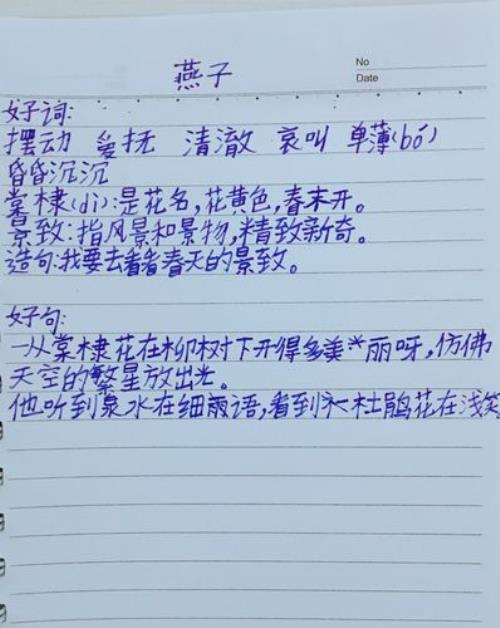 No
Date
燕子
好词:
摆动 爱抚 清澈 哀叫 单薄(bó)
昏昏沉沉
棠棣(dì):是花名,花黄色,春末开。
景致:指风景和景物,精致新奇。
造句:我要去看看春天的景致。
好句:
一从棠棣花在柳树下开得多美丽呀,仿佛
天空的繁星放出光。
他听到泉水在细雨语,看到杜鹃花在浅笑